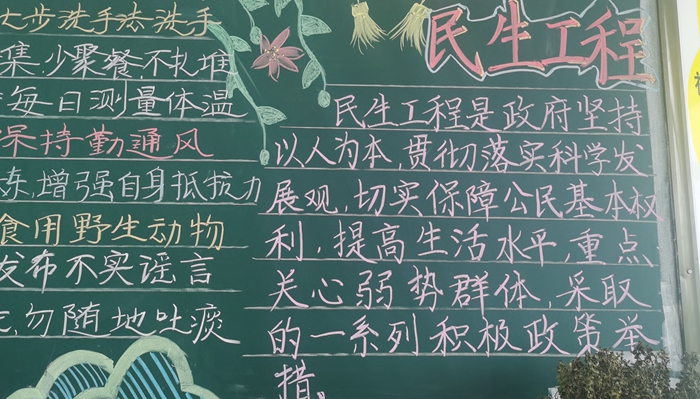 七步洗手法洗手
集,少聚餐,不扎堆
每日测量体温
保持勤通风
炼,增强自身抵抗力
食用野生动物
发布不实谣言
勿随地吐痰
民生工程
民生工程是政府坚持
以人为本,贯彻落实科学发
展观,切实保障公民基本权
利,提高生活水平,重点
关心弱势群体,采取
的一系列积极政策举
措。